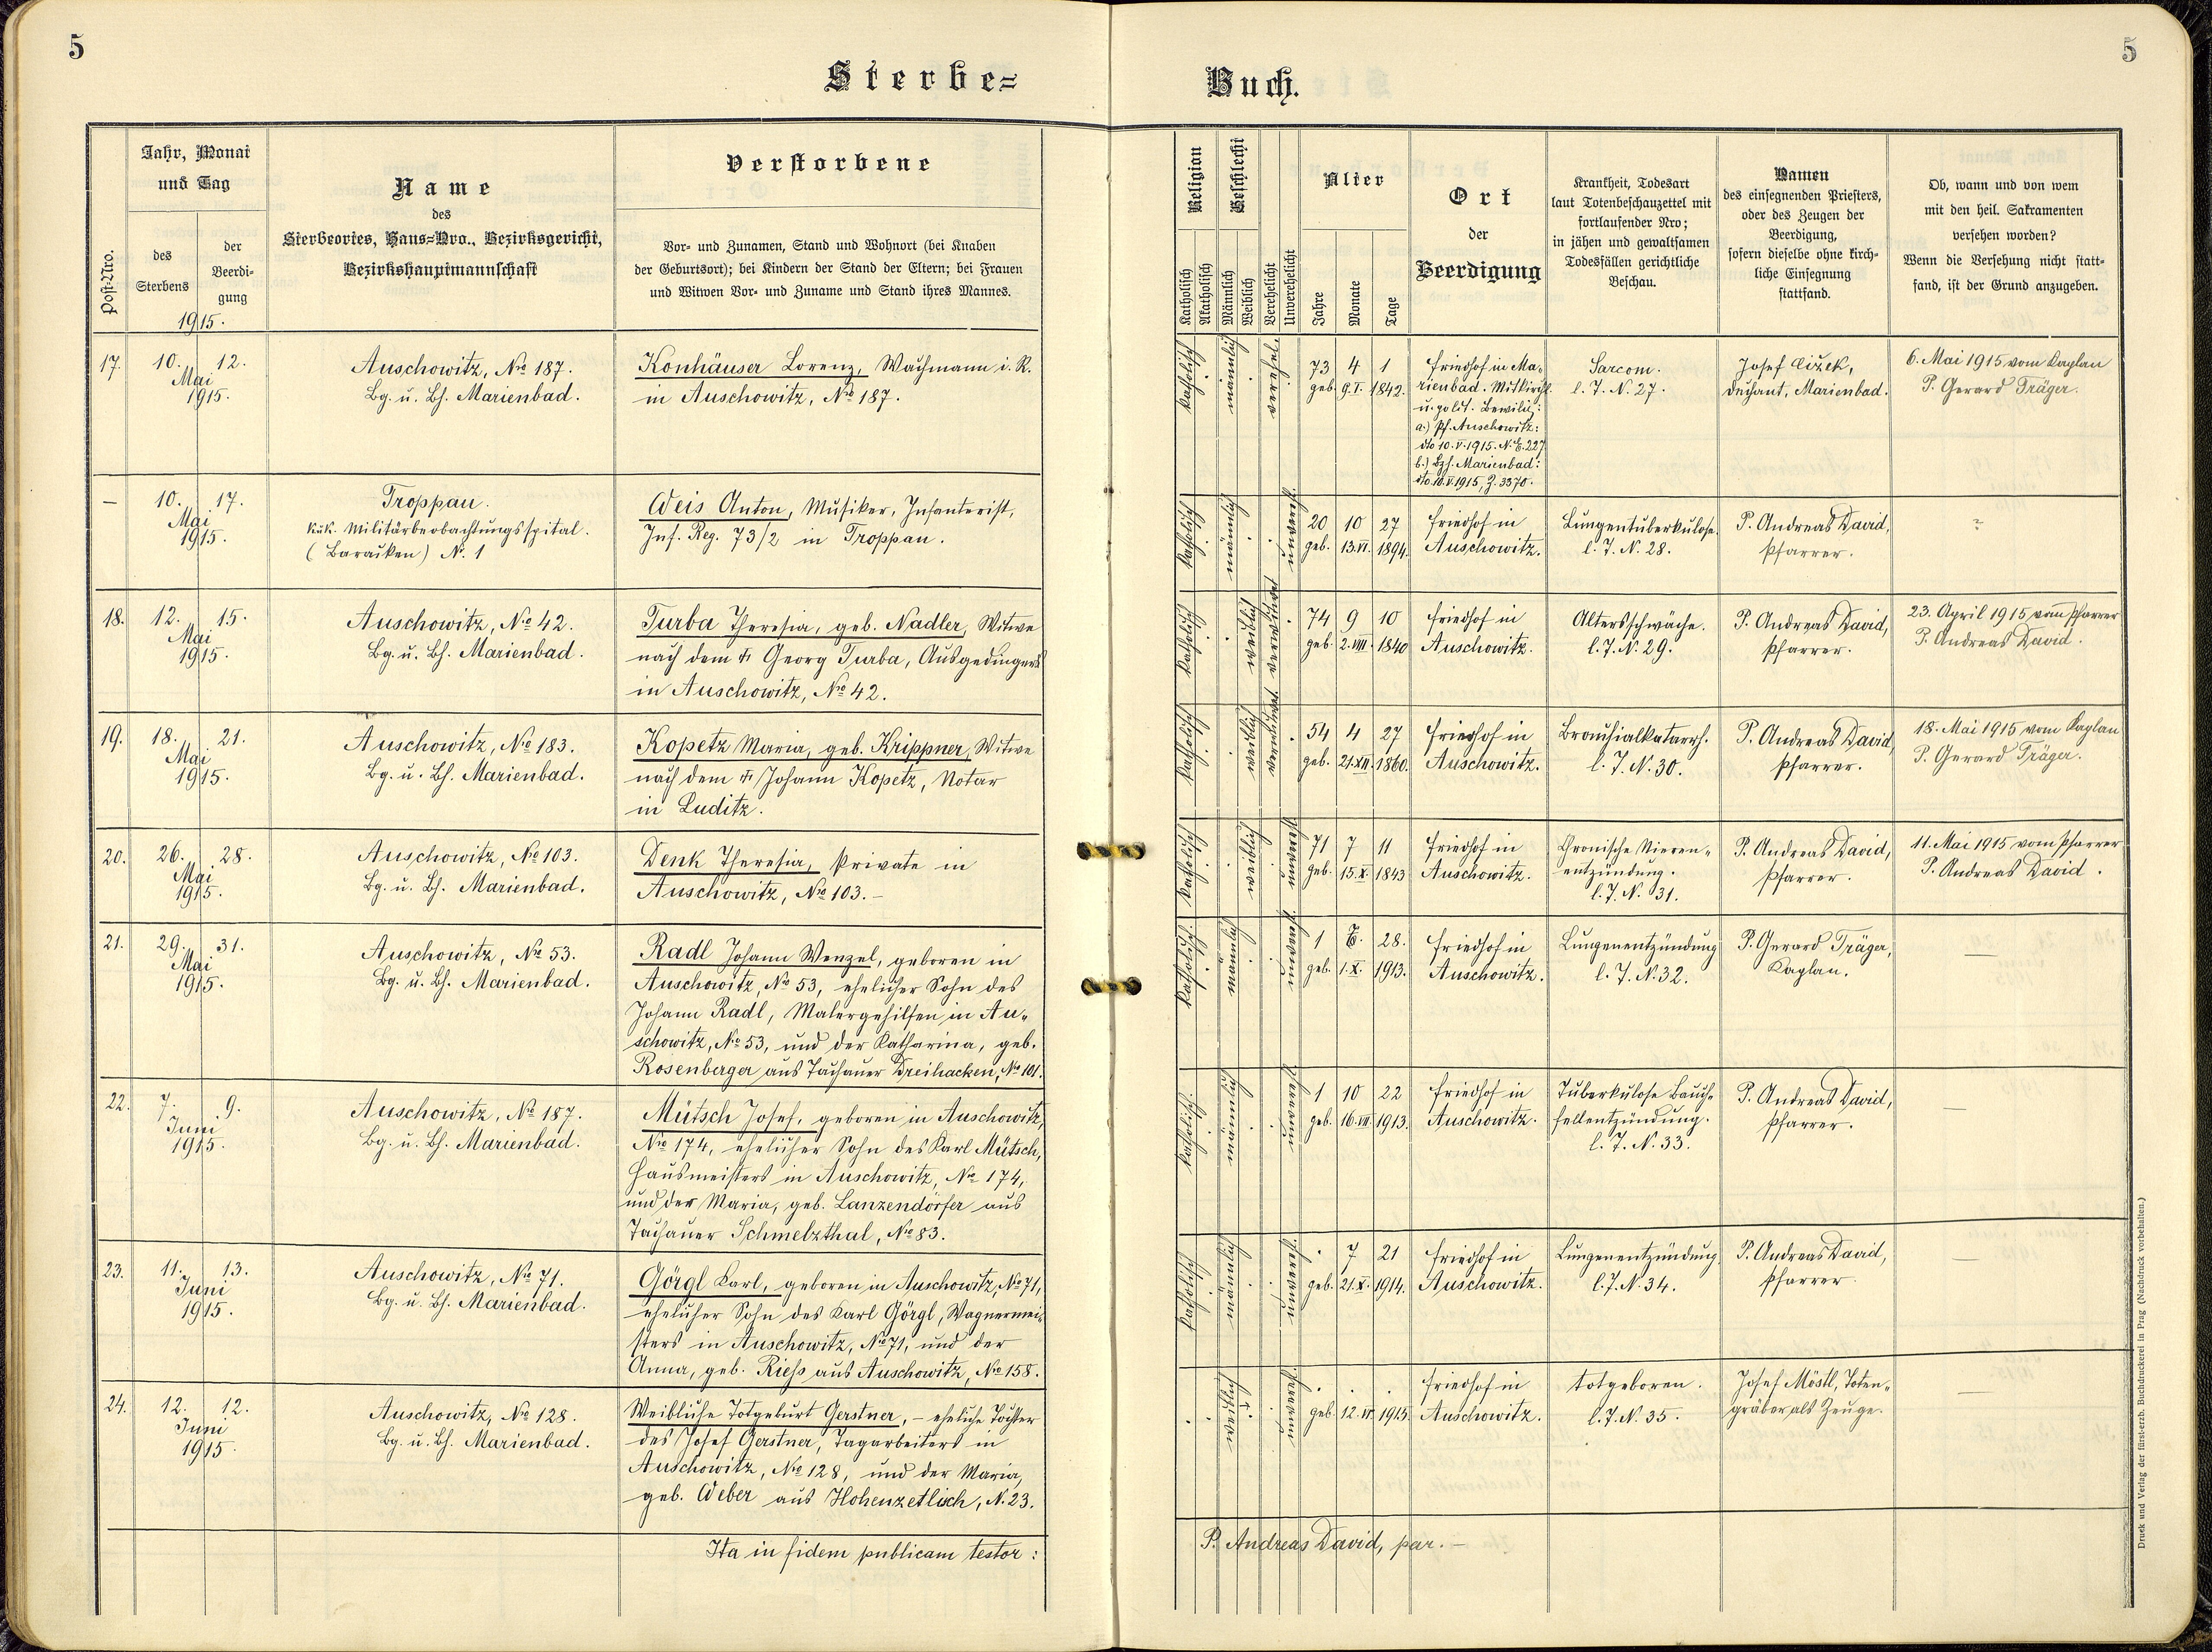 5
Sterbe=
Buch.
5
Post-Nro.
Jahr, Monat
und Tag
des
Sterbens
der
Beerdi-
gung
1915.
Name
des
Sterbeortes, Haus-Nro., Bezirksgericht,
Bezirkshauptmannschaft
Verstorbene
Vor- und Zunamen, Stand und Wohnort (bei Knaben
der Geburtsort); bei Kindern der Stand der Eltern; bei Frauen
und Witwen Vor- und Zuname und Stand ihres Mannes.
Religion
Katholisch
Akatholisch
Geschlecht
Männlich
Weiblich
Verehelicht
Unverehelicht
Alter
Jahre
Monate
Tage
Ort
der
Beerdigung
Krankheit, Todesart
laut Totenbeschauzettel mit
fortlaufender Nro;
in jähen und gewaltsamen
Todesfällen gerichtliche
Beschau.
Namen
des einsegnenden Priesters,
oder des Zeugen der
Beerdigung,
sofern dieselbe ohne kirch-
liche Einsegnung
stattfand.
Ob, wann und von wem
mit den heil. Sakramenten
versehen worden?
Wenn die Versehung nicht statt-
fand, ist der Grund anzugeben.
17. 10. 12.
Mai
1915.
Auschowitz, No 187.
Bg. u. Bh. Marienbad.
Konhäuser Lorenz, Wachmann i. R.
in Auschowitz, No 187.
katholisch
männlich
verehel.
73 4 1
geb. 9. I. 1842.
Friedhof in Ma-
rienbad. Mitkirchl.
u. polit. Bewilig:
a.) Pf. Auschowitz:
dto 10. V. 1915. N. E. 227.
b.) Bzh. Marienbad:
dto. 10. V. 1915, Z. 3370.
Sarcom.
l. T. N. 27.
Josef Cižek,
Dechant, Marienbad.
6. Mai 1915 vom Kaplan
P. Gerard Träger.
— 10. 17.
Mai
1915.
Troppau.
k.u.k. Militärbeobachtungsspital.
(Baracken) N. 1
Weis Anton, Musiker, Infanterist,
Inf. Reg. 73/2 in Troppau.
katholisch
männlich
unvereh.
20 10 27
geb. 13. VI. 1894.
Friedhof in
Auschowitz.
Lungentuberkulose.
l. T. N. 28.
P. Andreas David,
Pfarrer.
?
18. 12. 15.
Mai
1915.
Auschowitz, No 42.
Bg. u. Bh. Marienbad.
Turba Theresia, geb. Nadler, Witwe
nach dem † Georg Turba, Ausgedingers
in Auschowitz, No 42.
katholisch
weiblich
verwitwet
74 9 10
geb. 2. VIII. 1840
Friedhof in
Auschowitz.
Altersschwäche.
l. T. N. 29.
P. Andreas David,
Pfarrer.
23. April 1915 vom Pfarrer
P. Andreas David.
19. 18. 21.
Mai
1915.
Auschowitz, No 183.
Bg. u. Bh. Marienbad.
Kopetz Maria, geb. Krippner, Witwe
nach dem † Johann Kopetz, Notar
in Luditz.
katholisch
weiblich
verwitwet
54 4 27
geb. 21. XII. 1860.
Friedhof in
Auschowitz.
Bronchialkatarrh.
l. T. N. 30.
P. Andreas David,
Pfarrer.
18. Mai 1915 vom Kaplan
P. Gerard Träger.
20. 26. 28.
Mai
1915.
Auschowitz, No 103.
Bg. u. Bh. Marienbad.
Denk Theresia, Private in
Auschowitz, No 103. –
katholisch
weiblich
unvereh.
71 7 11
geb. 15. X. 1843
Friedhof in
Auschowitz.
Chronische Nieren-
entzündung.
l. T. N. 31.
P. Andreas David,
Pfarrer.
11. Mai 1915 vom Pfarrer
P. Andreas David.
21. 29. 31.
Mai
1915.
Auschowitz, No 53.
Bg. u. Bh. Marienbad.
Radl Johann Wenzel, geboren in
Auschowitz, No 53, ehelicher Sohn des
Johann Radl, Malergehilfen in Au-
schowitz, No 53, und der Katharina, geb.
Rosenberger aus Tachauer Dreihacken, No 101.
katholisch.
männlich
unvereh.
1 28.
geb. 1. X. 1913.
Friedhof in
Auschowitz.
Lungenentzündung
l. T. N. 32.
P. Gerard Träger,
Kaplan.
—
22. 7. 9.
Juni
1915.
Auschowitz, No 187.
Bg. u. Bh. Marienbad.
Mütsch Josef, geboren in Auschowitz,
No 174, ehelicher Sohn des Karl Mütsch,
Hausmeisters in Auschowitz, No 174,
und der Maria, geb. Lanzendörfer aus
Tachauer Schmelzthal, No 83.
katholisch.
männlich
unvereh.
1 10 22
geb. 16. VII. 1913.
Friedhof in
Auschowitz.
Tuberkulose Bauch-
fellentzündung.
l. T. N. 33.
P. Andreas David,
Pfarrer.
—
23. 11. 13.
Juni
1915.
Auschowitz, No 71.
Bg. u. Bh. Marienbad.
Görgl Karl, geboren in Auschowitz, No 71,
ehelicher Sohn des Karl Görgl, Wagnermei-
sters in Auschowitz, No 71, und der
Anna, geb. Riess aus Auschowitz, No 158.
katholisch
männlich
unvereh.
. 7 21
geb. 21. X. 1914.
Friedhof in
Auschowitz.
Lungenentzündung
l. T. N. 34.
P. Andreas David,
Pfarrer
—
24. 12. 12.
Juni
1915.
Auschowitz, No 128.
Bg. u. Bh. Marienbad.
Weibliche Totgeburt Gerstner, – eheliche Tochter
des Josef Gerstner, Tagarbeiters in
Auschowitz, No 128, und der Maria,
geb. Weber aus Hohenzetlisch, N. 23.
weiblich
unvereh.
geb. 12. VI. 1915.
Friedhof in
Auschowitz.
totgeboren.
l. T. N. 35.
Josef Möstl, Toten-
gräber als Zeuge.
—
Ita in fidem publicam testor:
P. Andreas David, par. –
Druck und Verlag der fürst-erzb. Buchdruckerei in Prag (Nachdruck vorbehalten.)